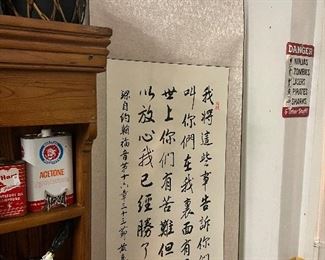 我將這些事告訴你們
叫你們在我裏面有
世上你們有苦難但
以放心我已經勝了
錄自約翰福音第十六章三十三節
ACETONE
DANGER
NINJAS
ZOMBIES
LASERS
PIRATES
SHARKS
& Other Stuff!!